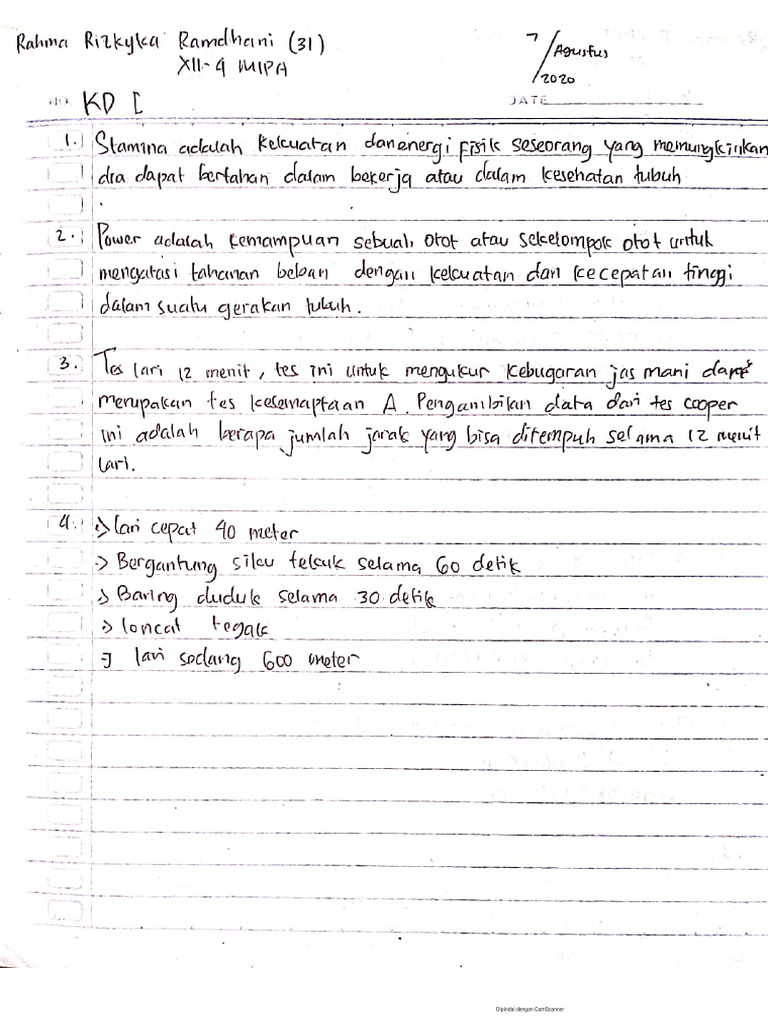 Rahma Rizkyka Ramdhani (31)
XII-4 MIPA
7/Agustus/2020
NO. KD I
DATE
1. Stamina adalah kekuatan dan energi fisik seseorang yang memungkinkan
dia dapat bertahan dalam bekerja atau dalam kesehatan tubuh
2. Power adalah kemampuan sebuah otot atau sekelompok otot untuk
mengatasi tahanan beban dengan kekuatan dan kecepatan tinggi
dalam suatu gerakan tubuh.
3. Tes lari 12 menit, tes ini untuk mengukur kebugaran jas mani dan
merupakan tes kesemaptaan A. Pengambilan data dari tes cooper
ini adalah berapa jumlah jarak yang bisa ditempuh selama 12 menit
lari.
4. -> lari cepat 40 meter
-> Bergantung siku tekuk selama 60 detik
-> Baring duduk selama 30 detik
-> loncat tegak
-> lari sedang 600 meter
Dipindai dengan CamScanner